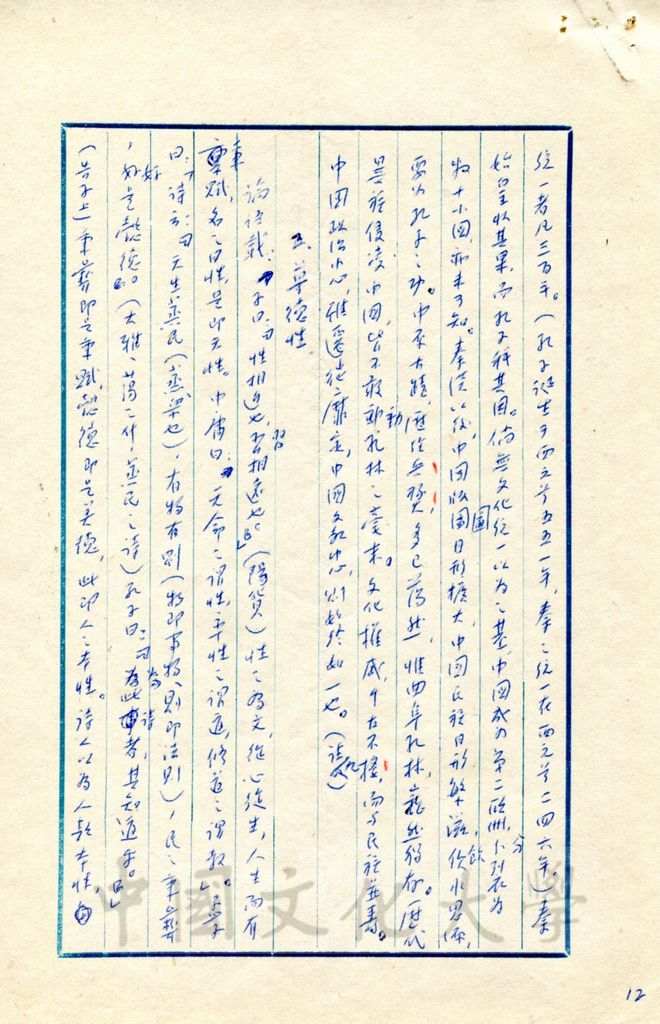 統一者凡三百年。(孔子誕生于西元前五五一年,秦之統一在西元前二四六年。)秦
始皇收其果,而孔子種其因。倘無文化統一以為之基,中國或為第二歐洲,分列為
數十小國,亦未可知。秦漢以後,中國版圖日形擴大,中國民族日形繁滋,飲水思源,
要為孔子之功。中原古蹟,歷經兵燹,多已蕩然,惟曲阜孔林,巍然獨存。歷代
異族侵凌中國,皆不敢動孔林之毫末。文化權威,千古不摧,而與民族並壽。
中國政治中心,雖遷徙靡定,中國文教中心,則始終如一也。(註九)
五、尊德性
論語載:「子曰:『性相近也,習相遠也。』」(陽貨)性之為文,從心從生,人生而有
秉賦,名之曰性,是即天性。中庸曰:「天命之謂性,率性之謂道,修道之謂教。」孟子
曰:「詩云:『天生蒸民(蒸,眾也),有物有則(物即事物,則即法則),民之秉彝
,好是懿德。』(大雅、蕩之什,蒸民之詩)孔子曰:『為此詩者,其知道乎。』」
(告子上)秉彝即是秉賦,懿德即是美德,此即人之本性。詩人以為人敦本性,
中國文化大學
12